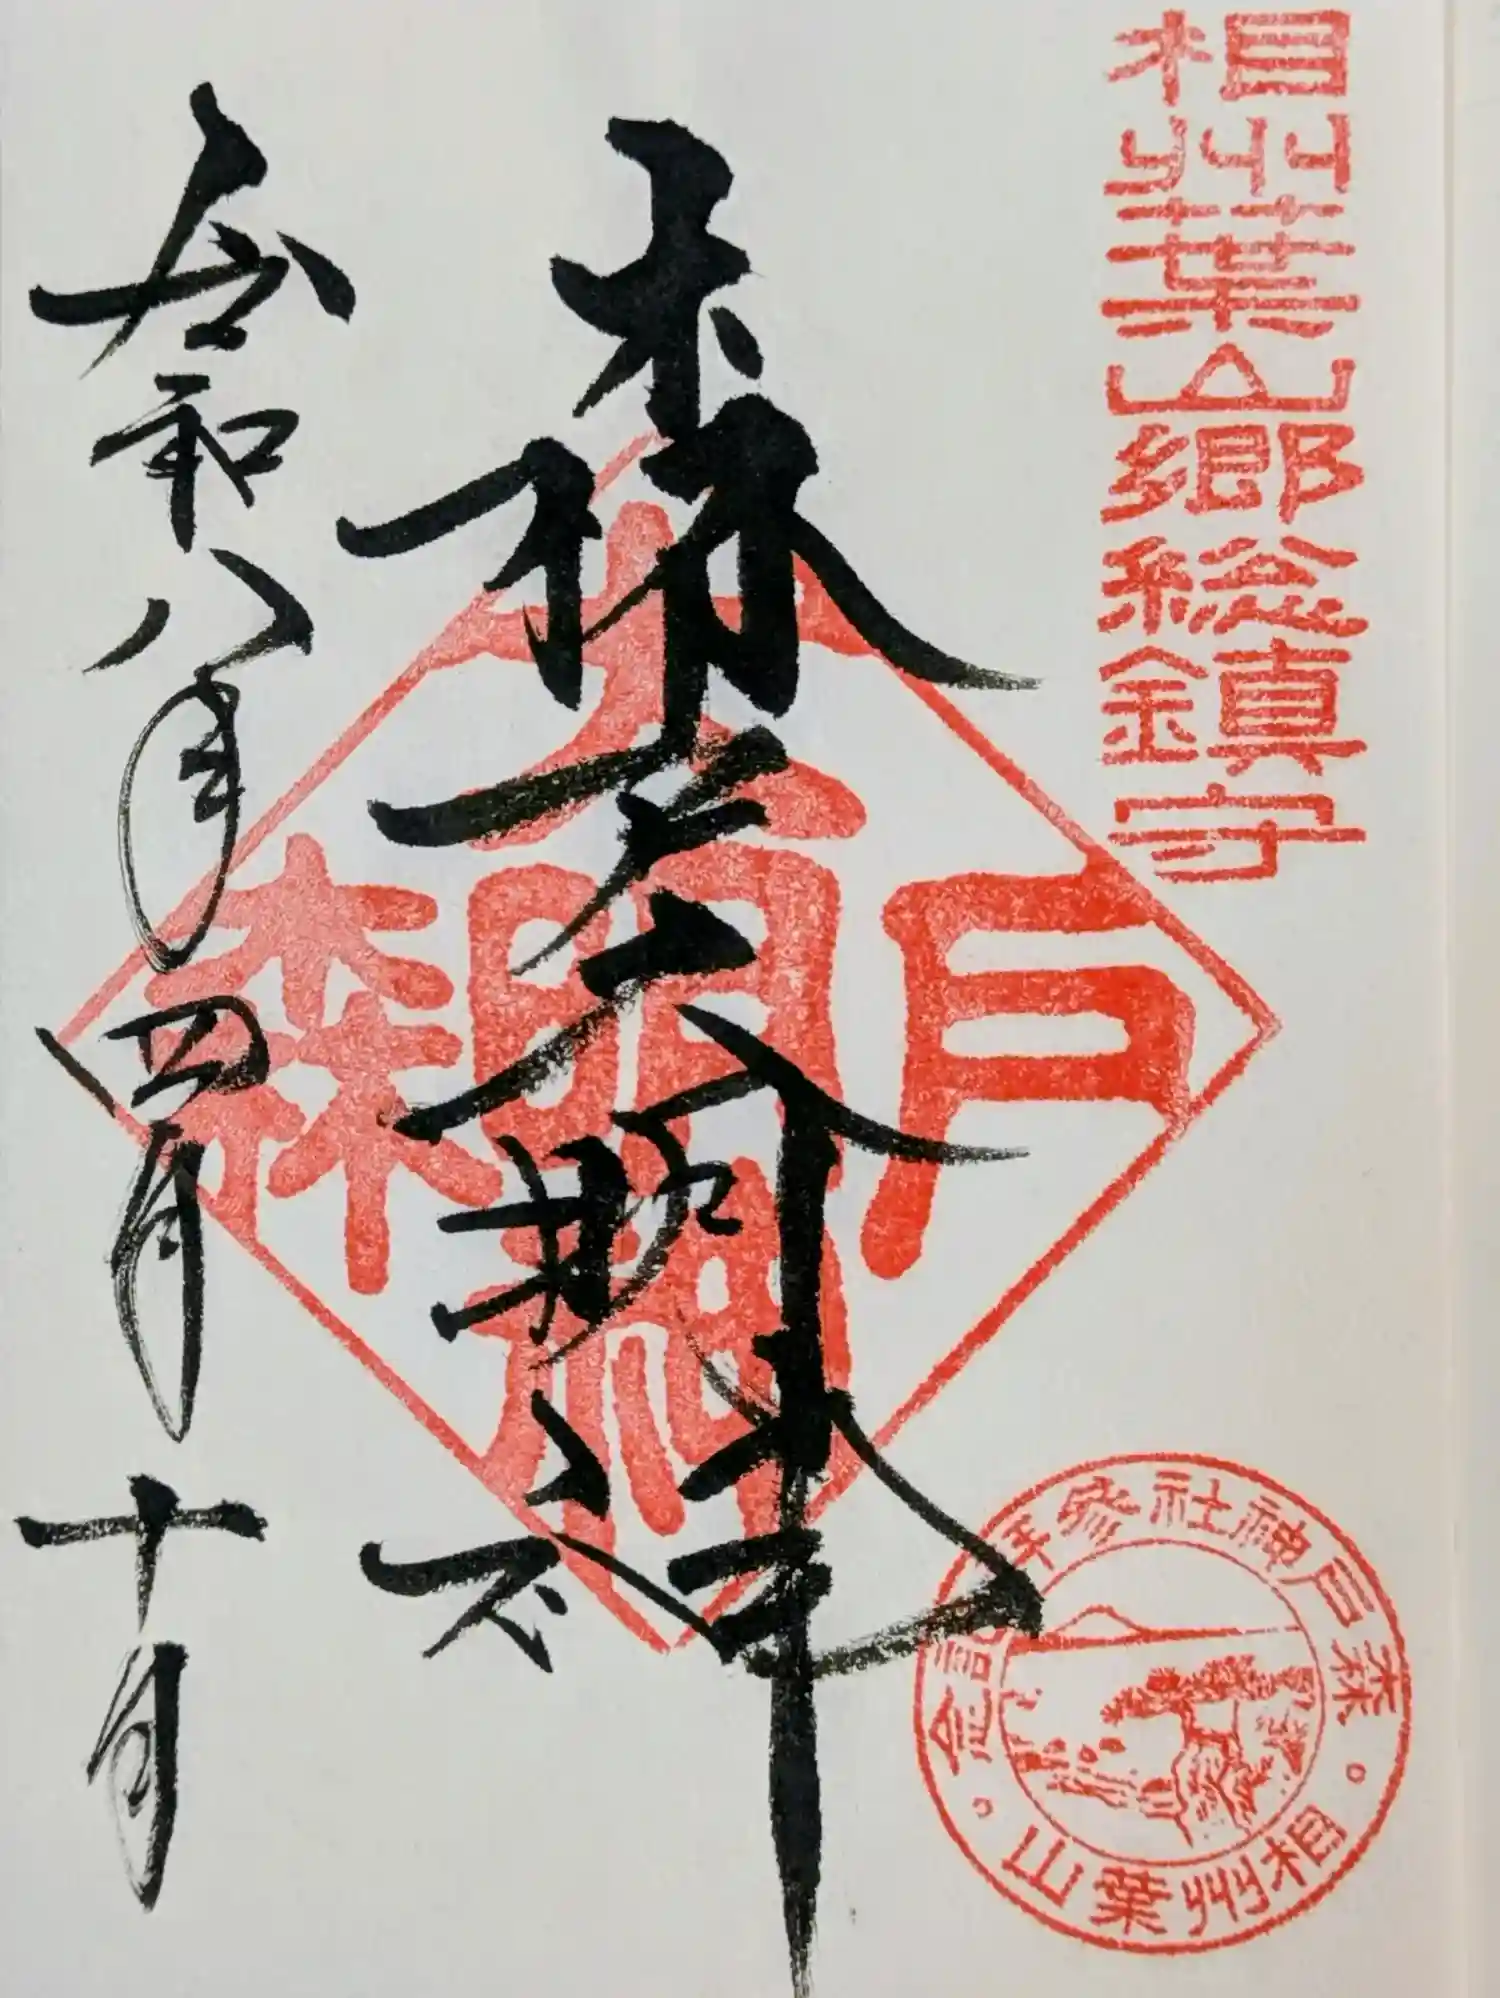 相州葉山郷総鎮守
森戸大明神
大明神
森戸
令和八年四月十日
森戸神社参拝記念
相州葉山